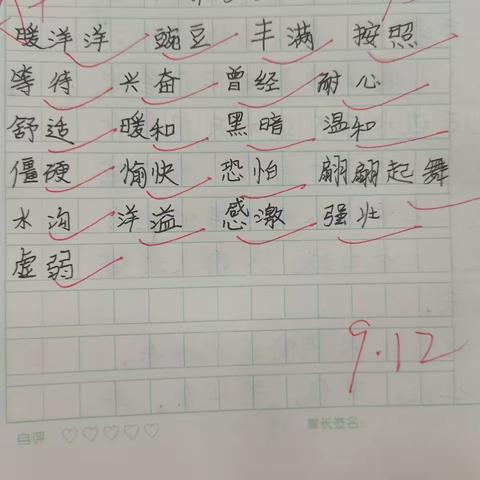 暖洋洋 豌豆 丰满 按照
等待 兴奋 曾经 耐心
舒适 暖和 黑暗 温和
僵硬 愉快 恐怕 翩翩起舞
水沟 洋溢 感激 强壮
虚弱
9.12
自评 ♡♡♡♡♡ 家长签名: